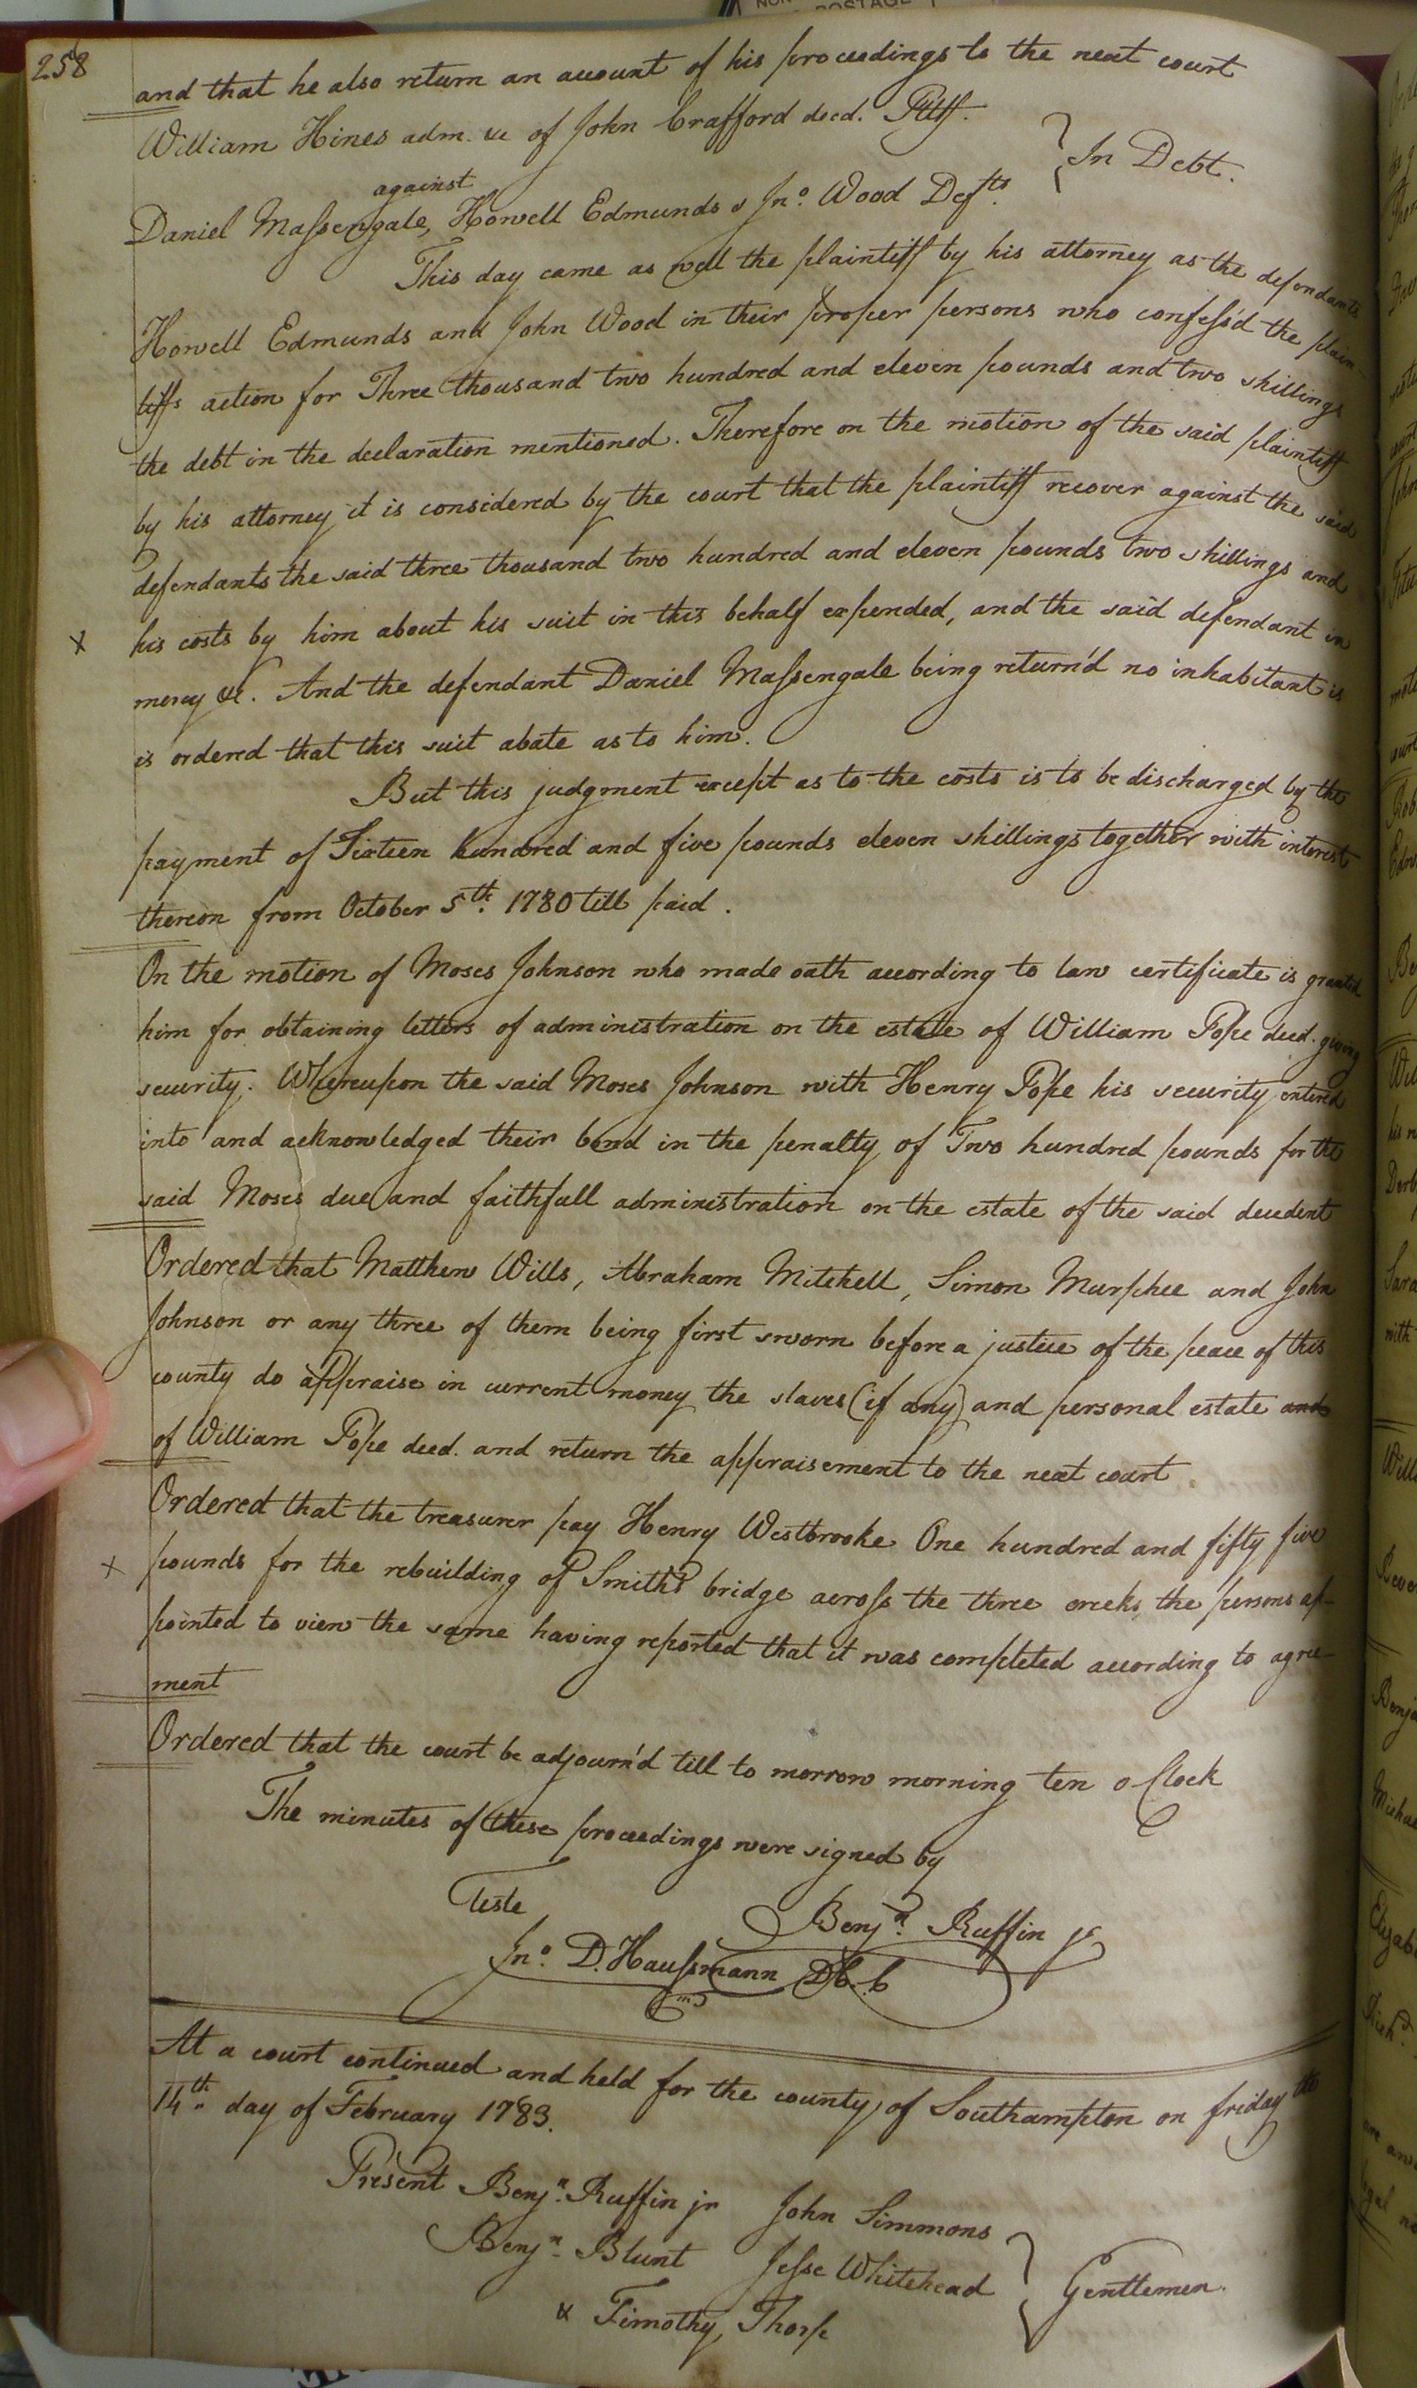 258
and that he also return an account of his proceedings to the next court
William Hines adm. &c of John Crafford decd. Pltff.
against
In Debt.
Daniel Massengale, Howell Edmunds & Jno. Wood Defts.
This day came as well the plaintiff by his attorney as the defendants
Howell Edmunds and John Wood in their proper persons who confess'd the plain-
tiffs action for Three thousand two hundred and eleven pounds and two shillings
the debt in the declaration mentioned. Therefore on the motion of the said plaintiff
by his attorney it is considered by the court that the plaintiff recover against the said
defendants the said three thousand two hundred and eleven pounds two shillings and
x his costs by him about his suit in this behalf expended, and the said defendant in
mercy &c. And the defendant Daniel Massengale being return'd no inhabitant is
is ordered that this suit abate as to him.
But this judgment except as to the costs is to be discharged by the
payment of Sixteen hundred and five pounds eleven shillings together with interest
thereon from October 5th. 1780 till paid.
On the motion of Moses Johnson who made oath according to law certificate is granted
him for obtaining letters of administration on the estate of William Pope decd. giving
security. Whereupon the said Moses Johnson with Henry Pope his security entered
into and acknowledged their bond in the penalty of Two hundred pounds for the
said Moses due and faithfull administration on the estate of the said decedent
Ordered that Matthew Wills, Abraham Mitchell, Simon Murphee and John
Johnson or any three of them being first sworn before a justice of the peace of this
county do appraise in current money the slaves (if any) and personal estate and
of William Pope decd. and return the appraisement to the next court.
Ordered that the treasurer pay Henry Westbrooke One hundred and fifty five
x pounds for the rebuilding of Smith's bridge across the three creeks the persons ap-
pointed to view the same having reported that it was completed according to agree-
ment
Ordered that the court be adjourn'd till to morrow morning ten o Clock
The minutes of these proceedings were signed by
Teste
Benjn. Ruffin jr
Jno. D. Haussmann D C. C
At a court continued and held for the county of Southampton on friday the
14th. day of February 1783.
Present Benjn. Ruffin jr John Simmons
Benjn. Blunt Jesse Whitehead
Gentlemen.
& Timothy Thorp